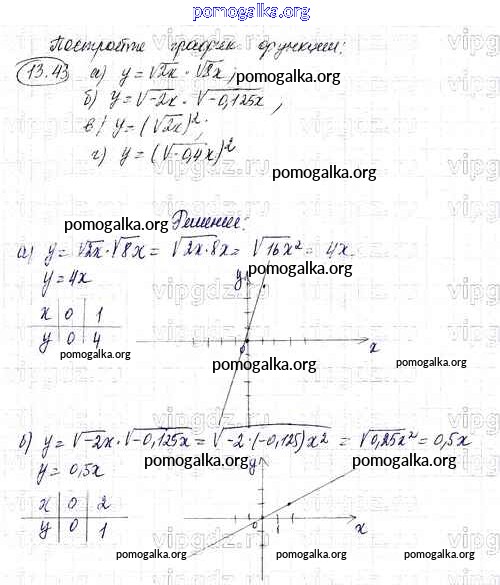 pomogalka.org
Постройте график функции:
13.43 а) y = √2x · √8x;
pomogalka.org
б) y = √-2x · √-0,125x;
в) y = (√2x)²;
г) y = (√-0,4x)²
pomogalka.org
pomogalka.org
Решение:
а) y = √2x · √8x = √2x·8x = √16x² = 4x.
pomogalka.org pomogalka.org
y = 4x
y
x 0 1
y 0 4
0 x
pomogalka.org pomogalka.org pomogalka.org
б) y = √-2x · √-0,125x = √-2·(-0,125)x² = √0,25x² = 0,5x
pomogalka.org pomogalka.org
y = 0,5x
y
x 0 2
y 0 1
0 x
pomogalka.org pomogalka.org pomogalka.org